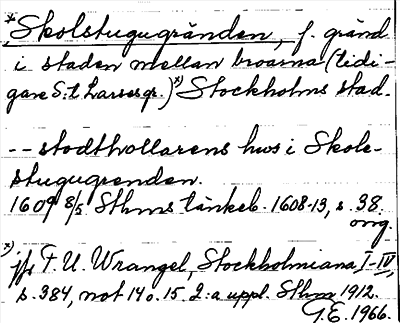 *Skolstugugränden, f. gränd
i staden mellan broarna (tidi-
gare S:t Larsegr.)*) Stockholms stad.
-- stadthollarens hws i Skole-
stugugrenden.
1609 8/5 Sthms tänkeb. 1608-13, s. 38.
orig.
*) jfr F. U. Wrangel, Stockholmiana I-IV,
s. 384, not 14 o. 15 2:a uppl. Sthm 1912.
G.E. 1966.